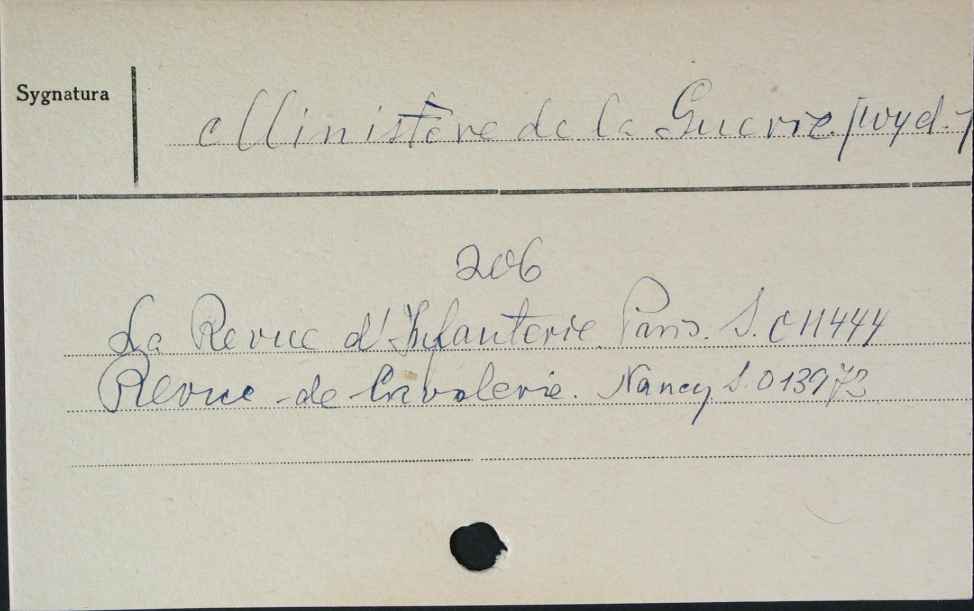 Sygnatura
Ministère de la Guerre. [wyd.]
206
La Revue d'Infanterie. Paris. S. C 11444
Revue de Cavalerie. Nancy S. 013973